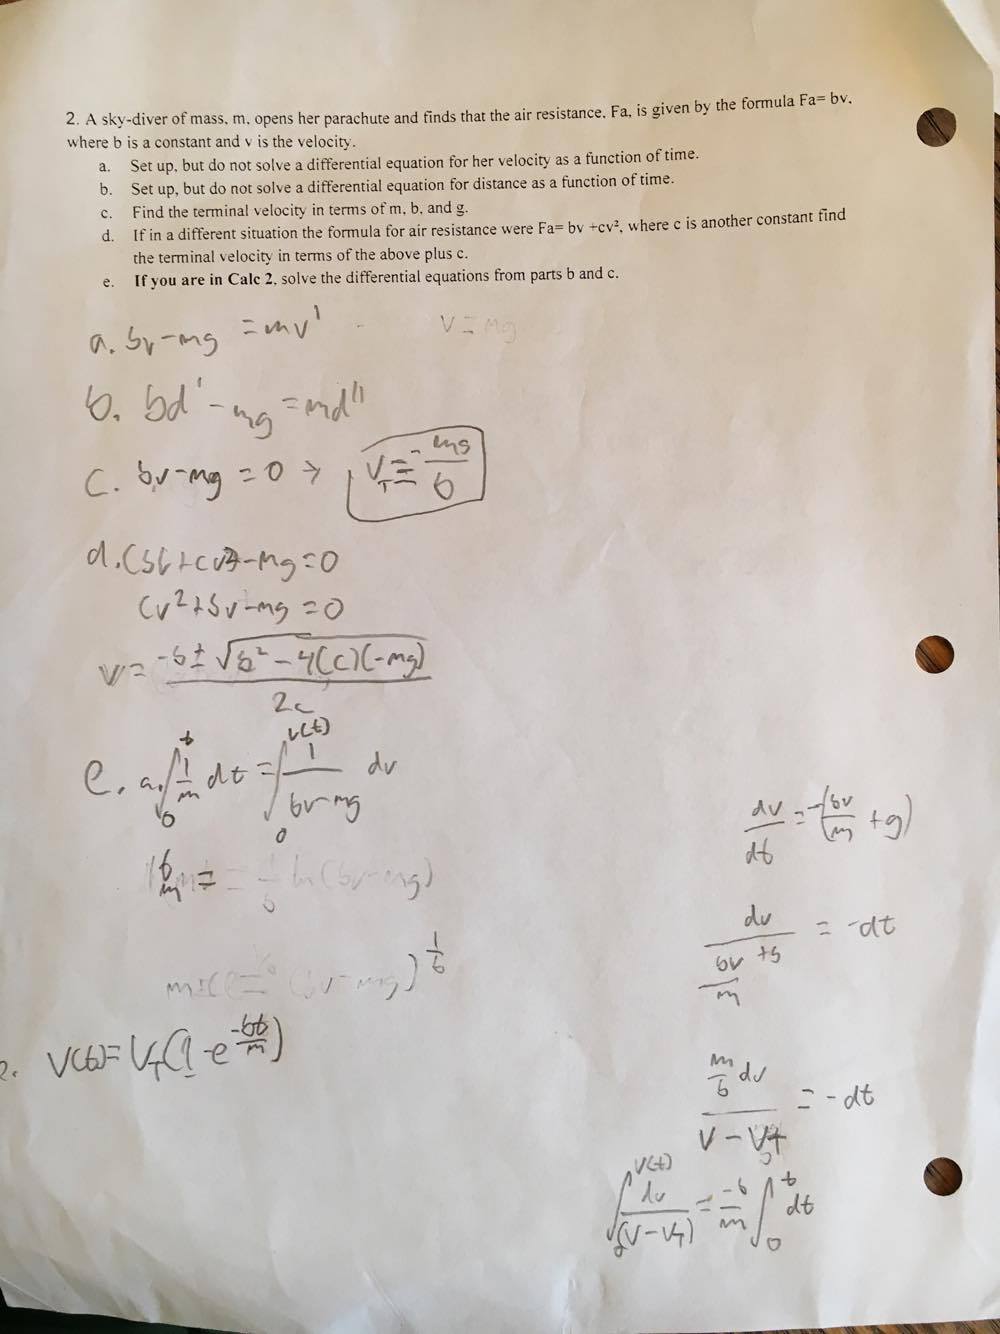 2. A sky-diver of mass, m, opens her parachute and finds that the air resistance, Fa, is given by the formula Fa= bv,
where b is a constant and v is the velocity.
a. Set up, but do not solve a differential equation for her velocity as a function of time.
b. Set up, but do not solve a differential equation for distance as a function of time.
c. Find the terminal velocity in terms of m, b, and g.
d. If in a different situation the formula for air resistance were Fa= bv +cv², where c is another constant find
the terminal velocity in terms of the above plus c.
e. If you are in Calc 2, solve the differential equations from parts b and c.
a. bv-mg = mv'
v = mg
b. bd' - mg = md''
c. bv-mg = 0 → v_T = -mg/b
d. -mg = 0
cv²+bv-mg = 0
v = (-b ± √(b² - 4(c)(-mg)))/2c
e. a. ∫_0^t 1/m dt = ∫_0^{v(t)} 1/(bv-mg) dv
ln(bv-mg)
dv/dt = -(bv/m + g)
dv/(bv/m + g) = -dt
v(t) = v_T(1-e^{-bt/m})
(m/b dv)/(v - v_T) = -dt
∫_0^{v(t)} dv/(v-v_T) = -b/m ∫_0^t dt